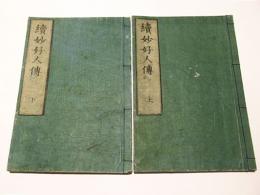 續妙好人傳 上
續妙好人傳 下